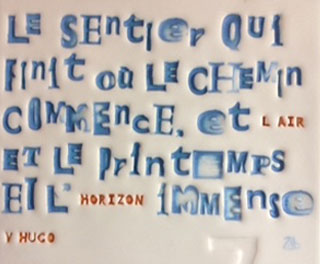 LE SEntiEr QUi
Finit où LE CHEMin
COMMENCE, et L AIR
ET LE PrintEMPS
ET L' HORIZON iMMEnse
V HUGO